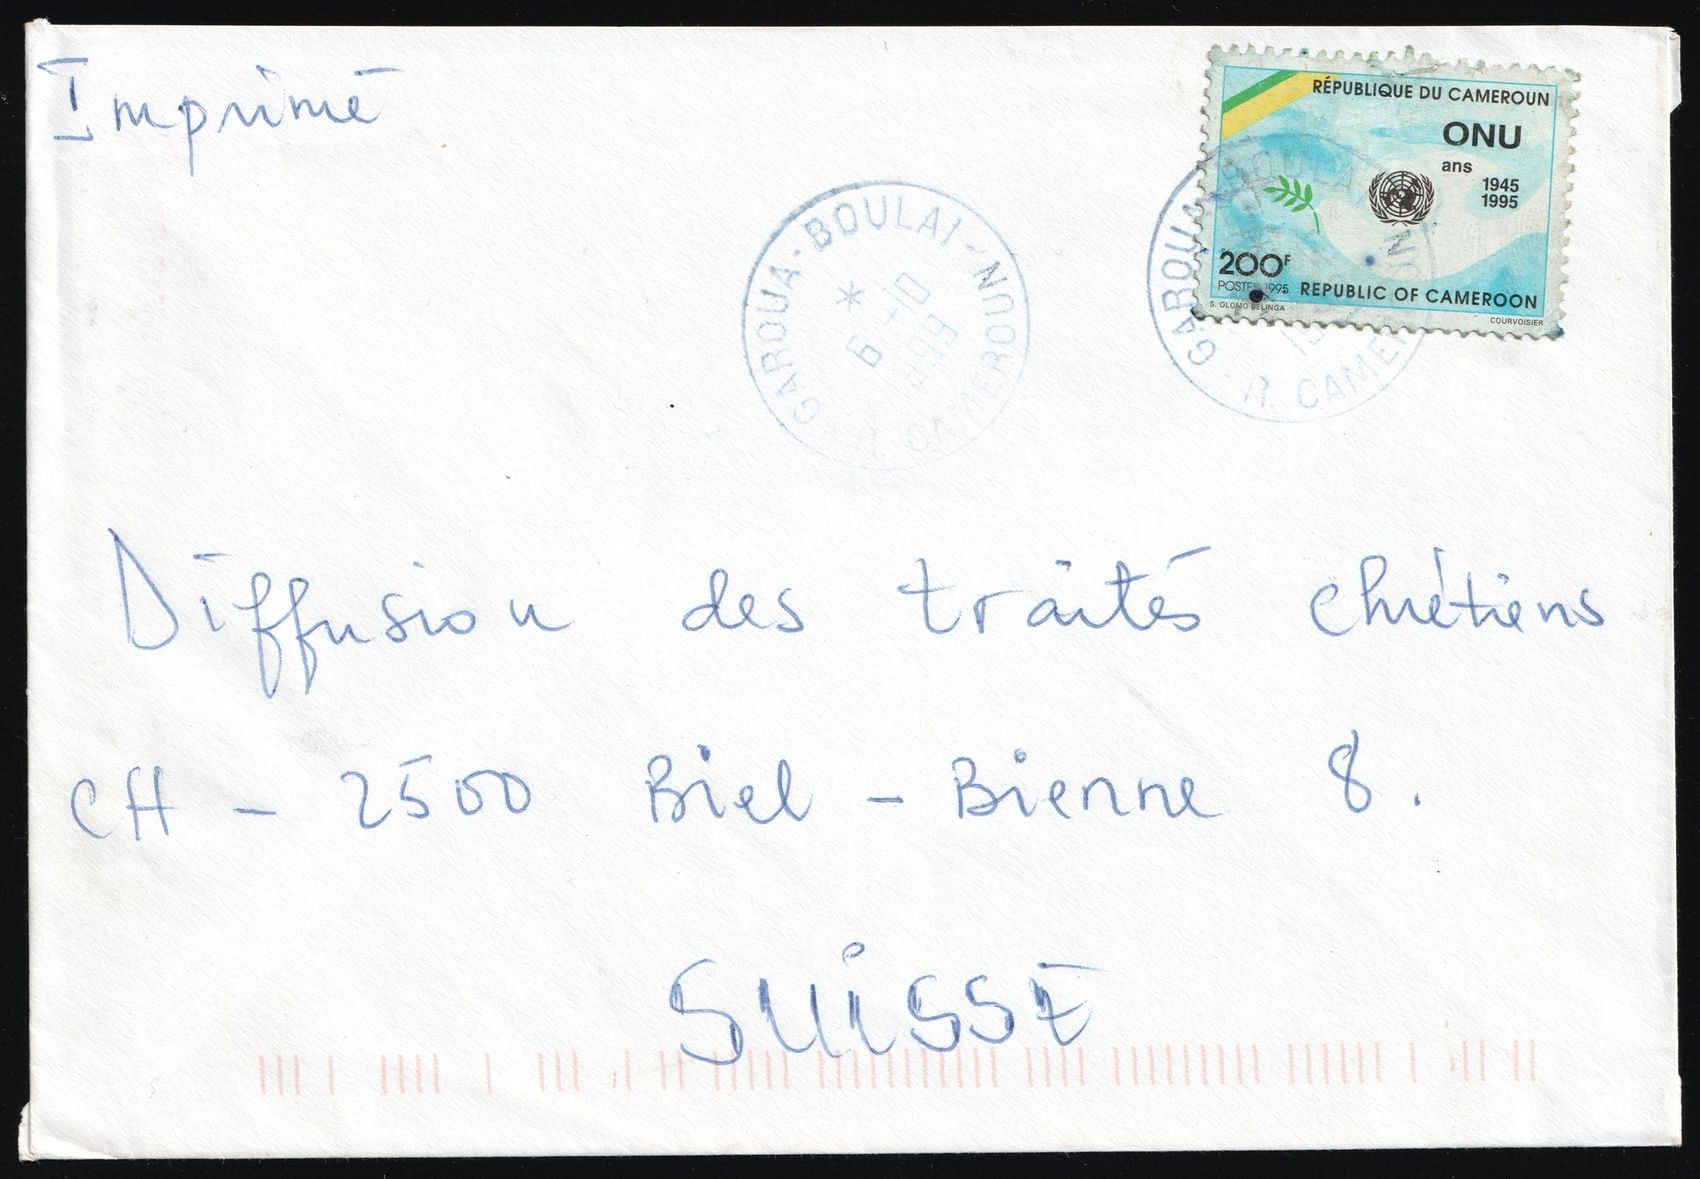 Imprimé
RÉPUBLIQUE DU CAMEROUN
ONU
ans
1945
1995
200F
POSTES 1995
REPUBLIC OF CAMEROON
S. OLOMO BELINGA
COURVOISIER
GAROUA-BOULAI-NGOUN
* 6-10
R. CAMEROUN
GAROUA
R. CAMEROUN
Diffusion des traités chrétiens
CH - 2500 Biel - Bienne 8.
SUISSE